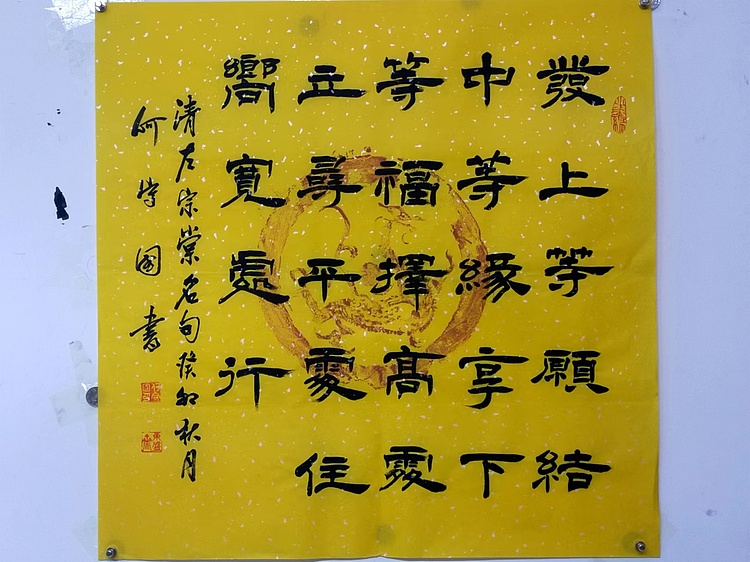 發上等願結
中等緣享下
等福擇高處
立尋平處住
嚮寬處行
清左宗棠名句癸卯秋月
何学國書